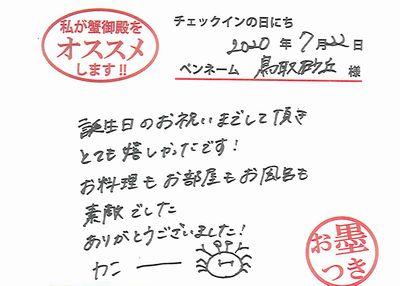 私が蟹御殿を
オススメ
します!!
チェックインの日にち
2020 年 7月22日
ペンネーム 鳥取砂丘 様
誕生日のお祝いまでして頂き
とても嬉しかったです!
お料理もお部屋もお風呂も
素敵でした
ありがとうございました!
カニ――
お墨
つき